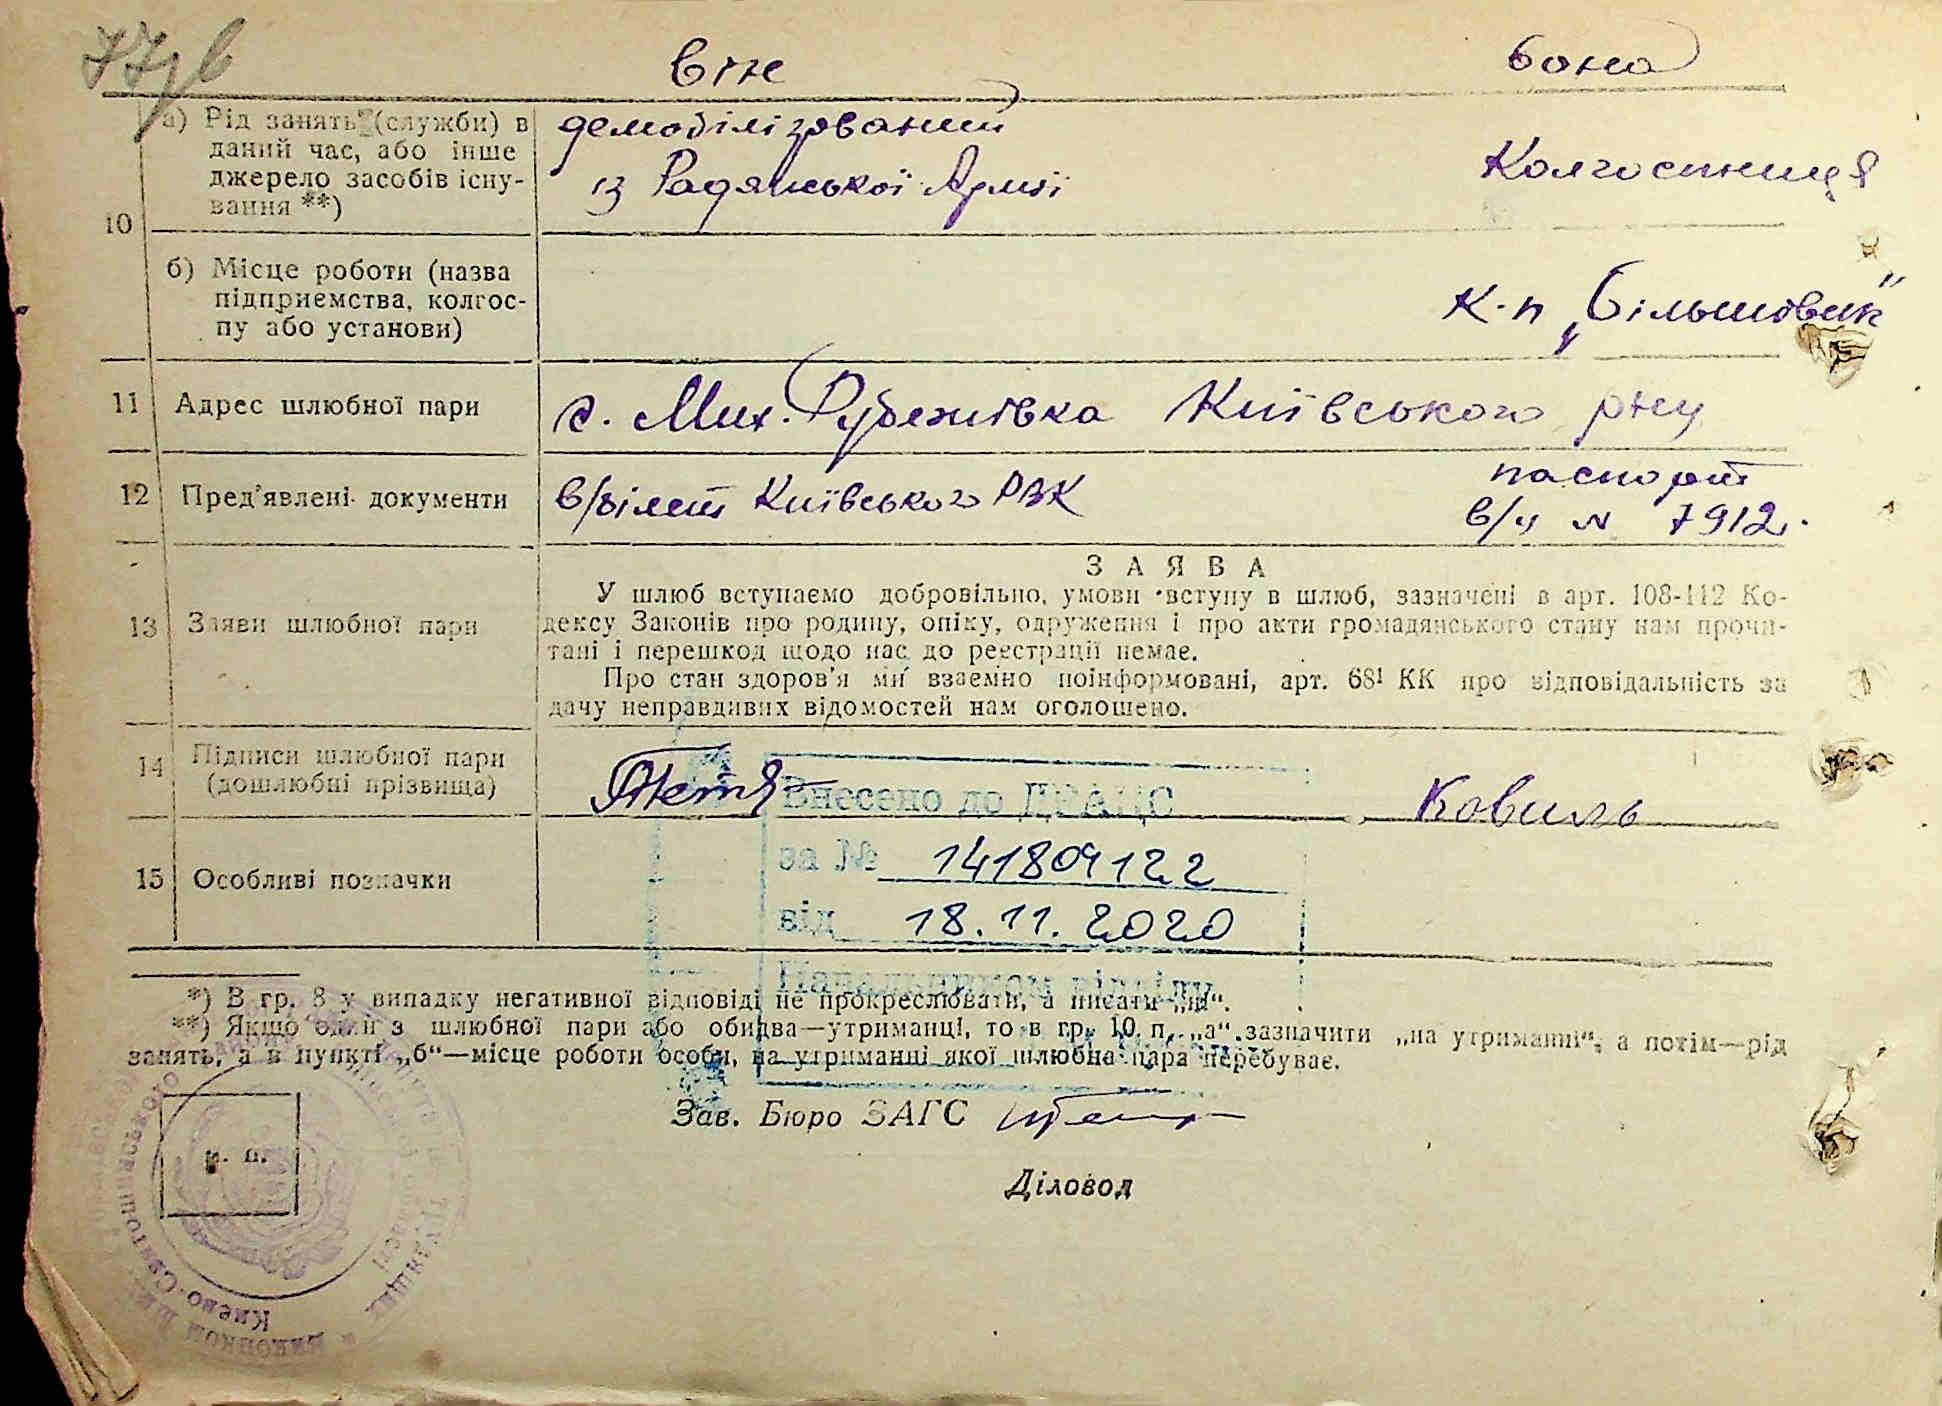 77 зв
він вона
10 а) Рід занять (служби) в
даний час, або інше
джерело засобів існу-
вання **)
демобілізований
із Радянської Армії
Колгоспниця
б) Місце роботи (назва
підприємства, колгос-
пу або установи)
к-п „Більшовик"
11 Адрес шлюбної пари
с. Мих. Рубежівка Київського р-ну
12 Пред'явлені документи
в/білет Київського РВК
паспорт
в/ч N 7912
13 Заяви шлюбної пари
ЗАЯВА
У шлюб вступаємо добровільно, умови вступу в шлюб, зазначені в арт. 108-112 Ко-
дексу Законів про родину, опіку, одруження і про акти громадянського стану нам прочи-
тані і перешкод щодо нас до реєстрації немає.
Про стан здоров'я ми взаємно поінформовані, арт. 68¹ КК про відповідальність за
дачу неправдивих відомостей нам оголошено.
14 Підписи шлюбної пари
(дошлюбні прізвища)
Ковиль
Внесено до ДРАЦС
за № 141809122
від 18.11.2020
Начальником відділу
15 Особливі позначки
*) В гр. 8 у випадку негативної відповіді не прокреслювати, а писати „ні".
**) Якщо один з шлюбної пари або обидва—утриманці, то в гр. 10 п. „а" зазначити „на утриманні", а потім—рід
занять, а в пункті „б"—місце роботи особи, на утриманні якої шлюбна пара перебуває.
Зав. Бюро ЗАГС
м. п.
Діловод
Києво-Святошинського